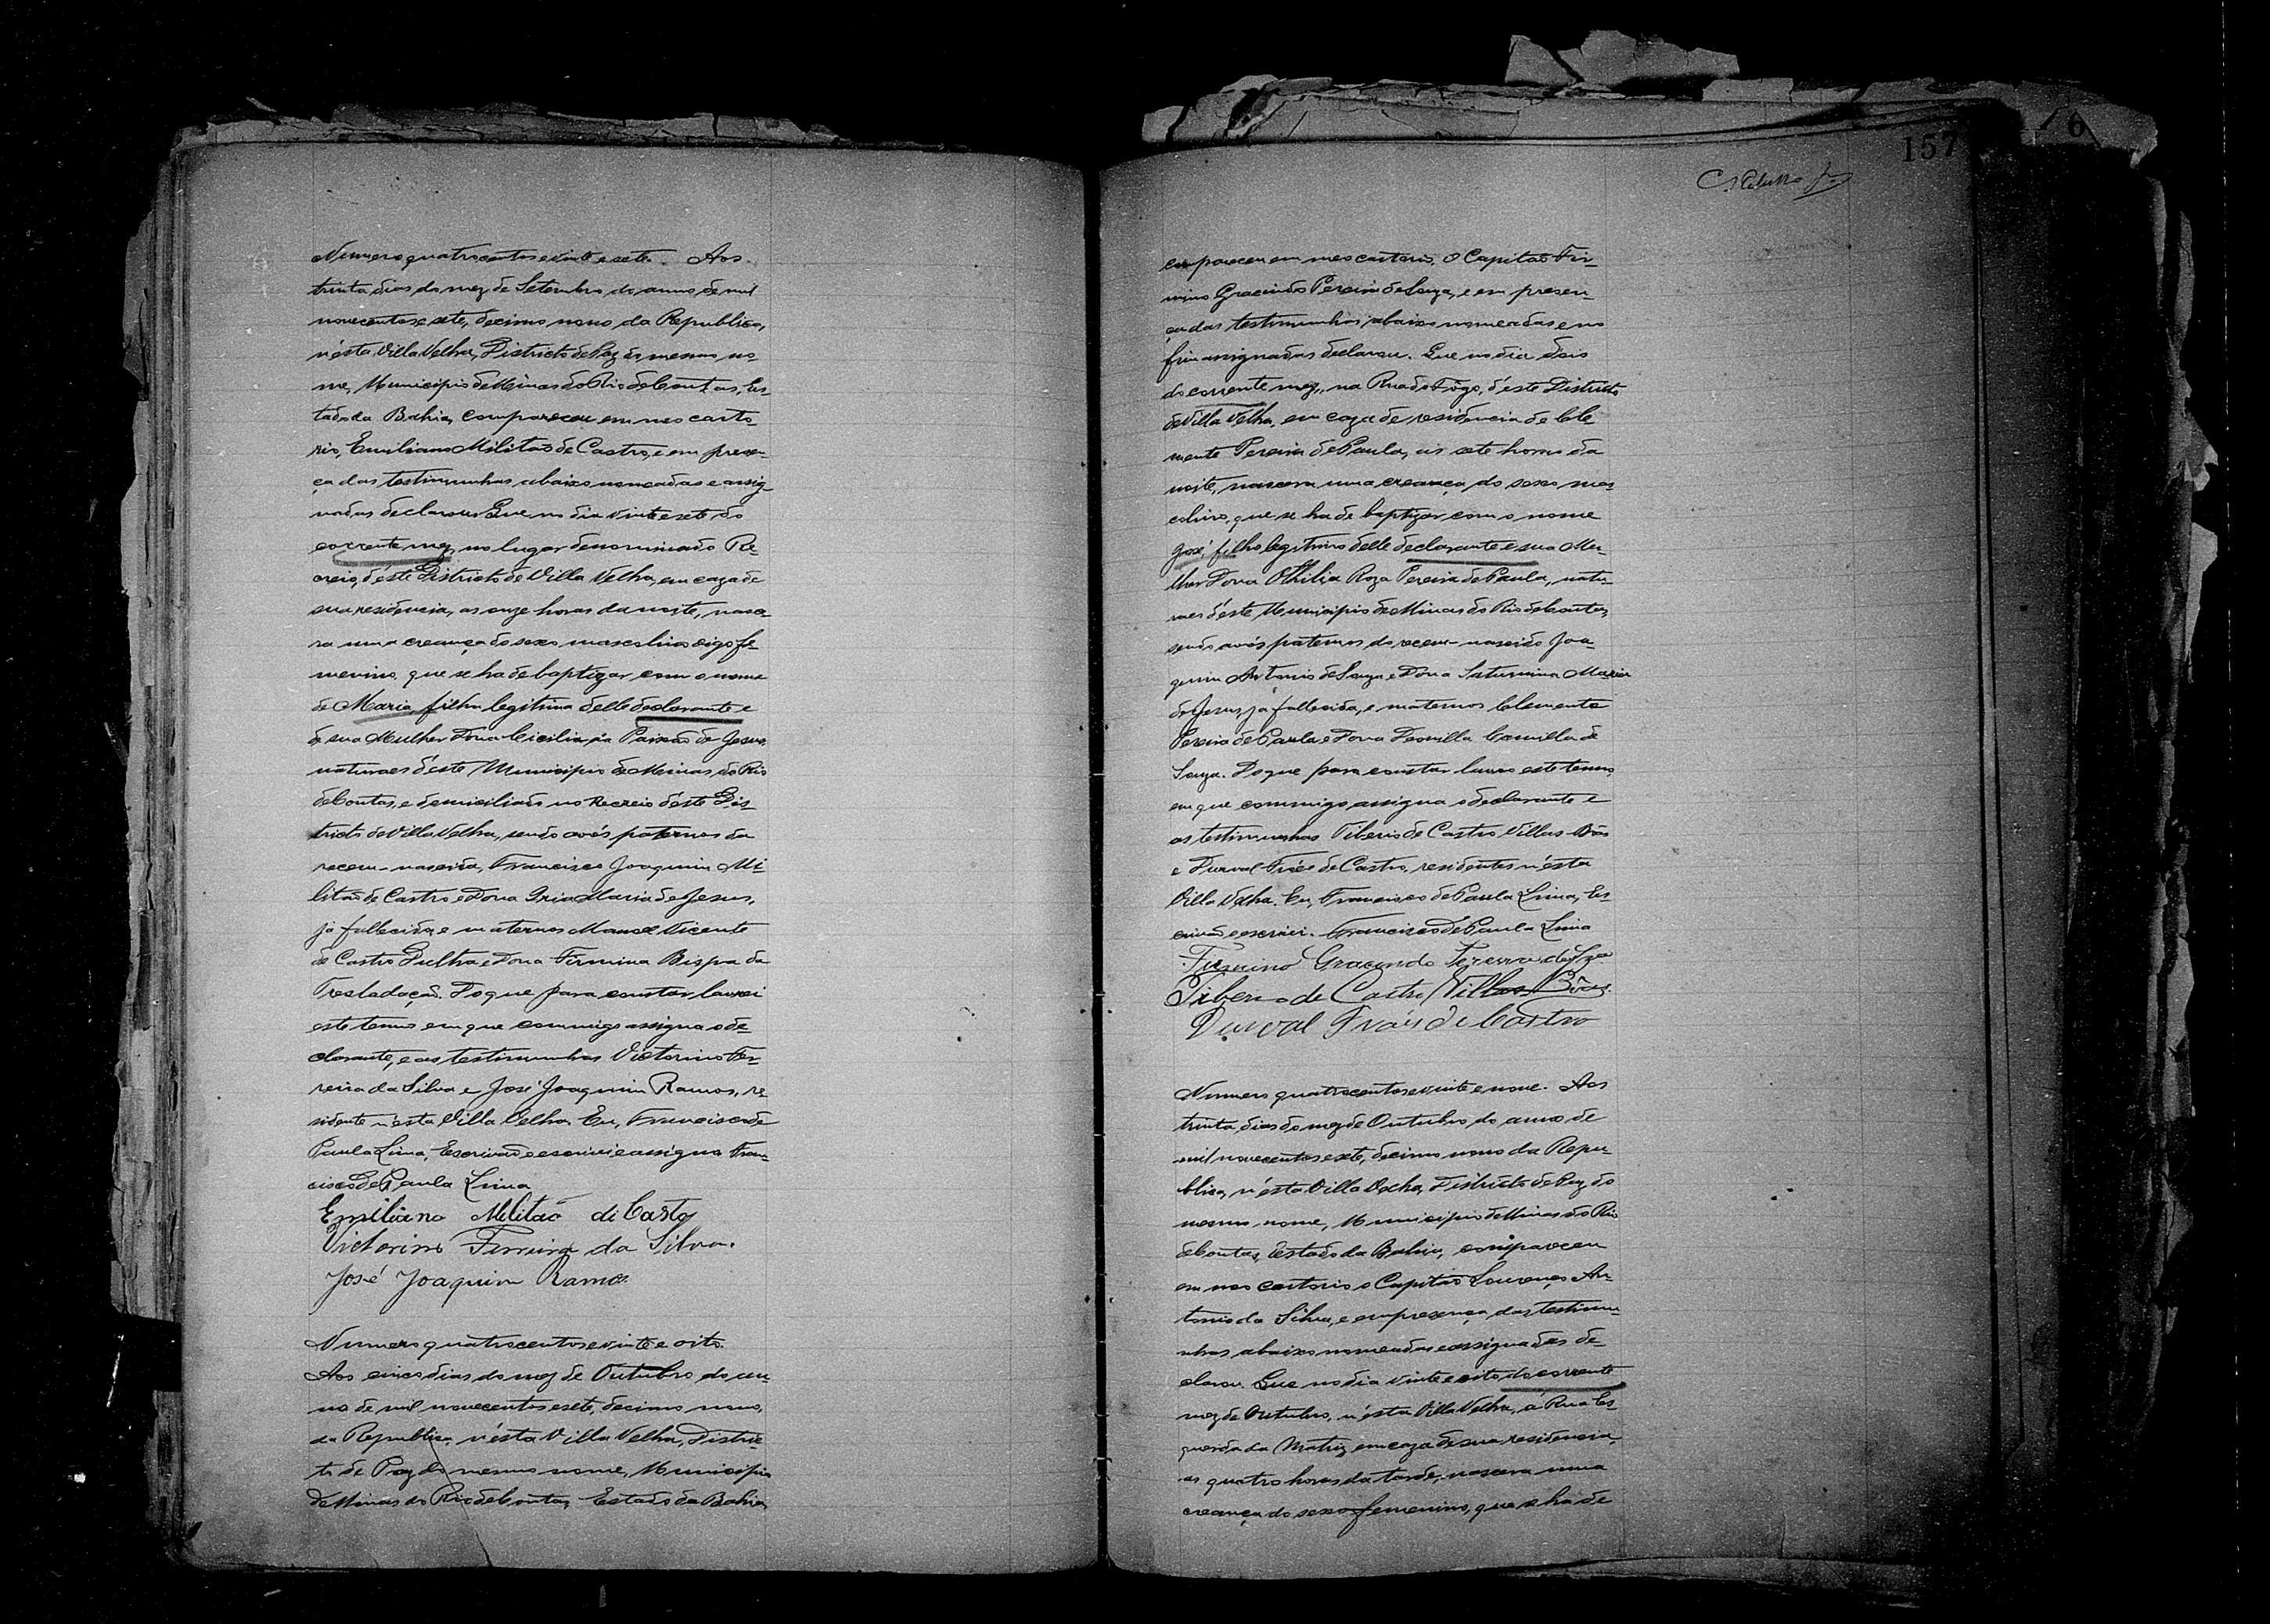 Numero quatrocentos e vinte e sete. Aos
trinta dias do mez de Setembro do anno de mil
novecentos e sete, decimo nono da Republica,
n'esta Villa Velha, Districto de Paz do mesmo no-
me, Municipio de Minas do Rio de Contas, Es-
tado da Bahia, compareceu em meo carto-
rio, Emiliano Militão de Castro, e em presen-
ça das testimunhas abaixo nomeadas e assig-
nadas declarou: Que no dia vinte sete do
corrente mez, no lugar denominado Re-
creio, d'éste Districto de Villa Velha, em caza de
sua residencia, as onze horas da noite, nasce-
ra uma creança do sexo masculino digo fe-
menino, que se ha de baptizar com o nome
de Maria, filha legitima delle declarante e
de sua Mulher Dona Cicilia da Paixão de Jesus,
naturaes d'éste Municipio de Minas do Rio
de Contas, e domiciliado no Recreio d'éste Dis-
tricto de Villa Velha, sendo avós paternos da
recem-nascida, Francisco Joaquim Mi-
litão de Castro e Dona Maria de Jesus,
já fallecida, e maternos Manoel Vicente
de Castro e Dona Firmina Bispa da
Tresladação. Do que para constar lavrei
este termo em que commigo assigna o de-
clarante, e as testimunhas Victorino Fer-
reira da Silva e José Joaquim Ramos, re-
sidente n'ésta Villa Velha. Eu, Francisco de
Paula Lima, Escrivão o escrivi e assigno Fran-
cisco de Paula Lima
Emiliano Militão de Castro
Victorino Ferreira da Silva.
José Joaquim Ramos.
Numero quatrocentos e vinte e oito.
Aos cinco dias do mez de Outubro do an-
no de mil novecentos e sete, decimo nono,
da Republica, n'ésta Villa Velha, Distric-
to de Paz do mesmo nome, Municipio
de Minas do Rio de Contas, Estado da Bahia,
157
compareceu em meo cartorio, o Capitão Fir-
mino Gracindo Pereira de Souza, e em presen-
ça das testimunhas abaixo nomeadas e no
fim assignadas declarou. Que no dia dois
do corrente mez, na Rua do Fôgo, d'éste Districto
de Villa Velha, em caza de residencia de Cle-
mente Pereira de Paula, as sete horas da
noite, nascera uma creança do sexo mas-
culino, que se ha de baptizar com o nome
José, filho legitimo delle declarante e sua Mu-
lher Dona Othilia Roza Pereira de Paula, natu-
raes d'éste Municipio de Minas do Rio de Contas,
sendo avós paternos do recem-nascido Joa-
quim Antonio de Souza e Dona Saturnina Maria
de Jesus, já fallecida, e maternos Clemente
Pereira de Paula e Dona Camilla de
Souza. Do que para constar lavro este termo,
em que commigo assigna o declarante e
as testimunhas Tiberio de Castro Villas Bôas
e Durval Fróes de Castro, residentes n'ésta
Villa Velha. Eu, Francisco de Paula Lima, Es-
crivão o escrivi. Francisco de Paula Lima
Firmino Gracindo Pereira de Sza
Tiberio de Castro Villas Bôas.
Durval Fróes de Castro
Numero quatrocentos e vinte e nove. Aos
trinta dias do mez de Outubro do anno de
mil novecentos e sete, decimo nono da Repu-
blica, n'ésta Villa Velha, Districto de Paz do
mesmo nome, Municipio de Minas do Rio
de Contas, Estado da Bahia, compareceu
em meo cartorio o Capitão Lourenço An-
tonio da Silva, e em presença das testimu-
nhas abaixo nomeadas e assignadas de-
clarou. Que no dia vinte e oito do corrente
mez de Outubro, n'ésta Villa Velha, á Rua Es-
querda da Matriz, em caza de sua residencia,
as quatro horas da tarde, nascera uma
creança do sexo femenino, que se ha de